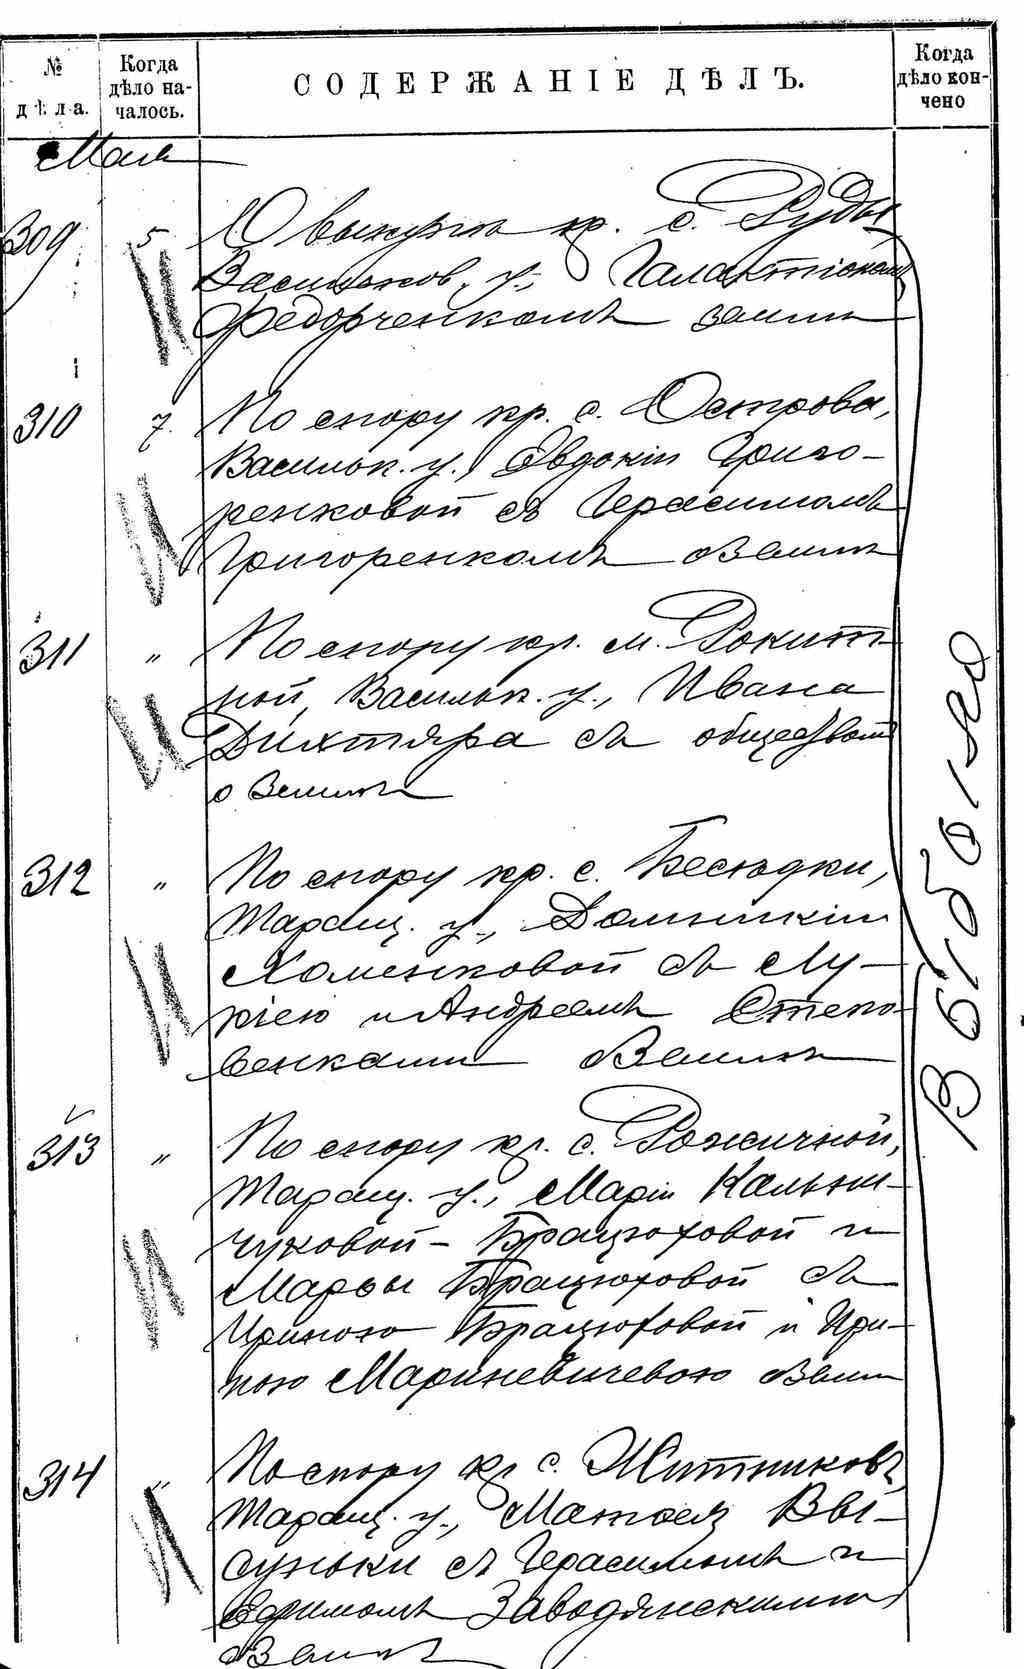 № дѣла.
Когда дѣло началось.
СОДЕРЖАНІЕ ДѢЛЪ.
Когда дѣло кончено
Мая
309 5 О выкупѣ кр. с. Руды,
Васильков. у., Галактіономъ
Федорченкомъ земли
310 7. По спору кр. с. Острова,
Васильк. у., Евдокіи Григо-
ренковой съ Герасимомъ
Григоренкомъ о землѣ
311 " По спору кр. м. Рокит-
ной, Васильк. у., Ивана
Дихтяра съ обществомъ
о землѣ
312 " По спору кр. с. Бесѣдки,
Таращ. у., Домникіи
Хоменковой съ Лу-
кіею и Андреемъ Степо-
венками о землѣ
313 " По спору кр. с. Рожичной,
Таращ. у., Маріи Кальни-
чуковой - Брацюховой и
Марѳы Брацюховой съ
Ириною Брацюховой и Ири-
ною Мариневичевою о земл
314 " По спору кр с. Житниковъ,
Таращ. у., Матѳея Вы-
суньки съ Герасимомъ и
Ефимомъ Заводянскими
о землѣ